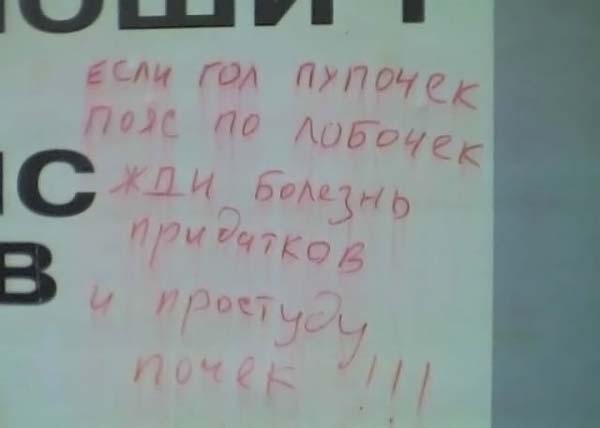 ОШИТ
ЕСЛИ ГОЛ ПУПОЧЕК
ПОЯС ПО ЛОБОЧЕК
ЖДИ БОЛЕЗНЬ
придатков
и простуду
почек !!!
ИС
В